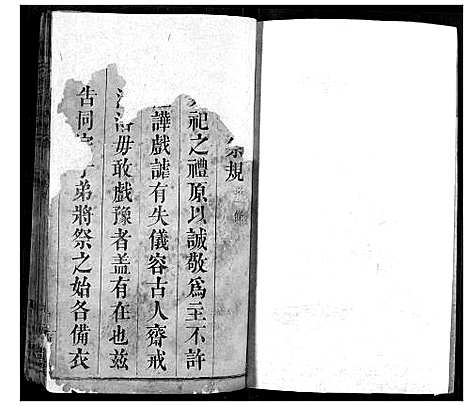 規
祀之禮原以誠敬爲主不許
譁戲謔有失儀容古人齋戒
毋敢戲豫者盖有在也兹
告同弟將祭之始各備衣